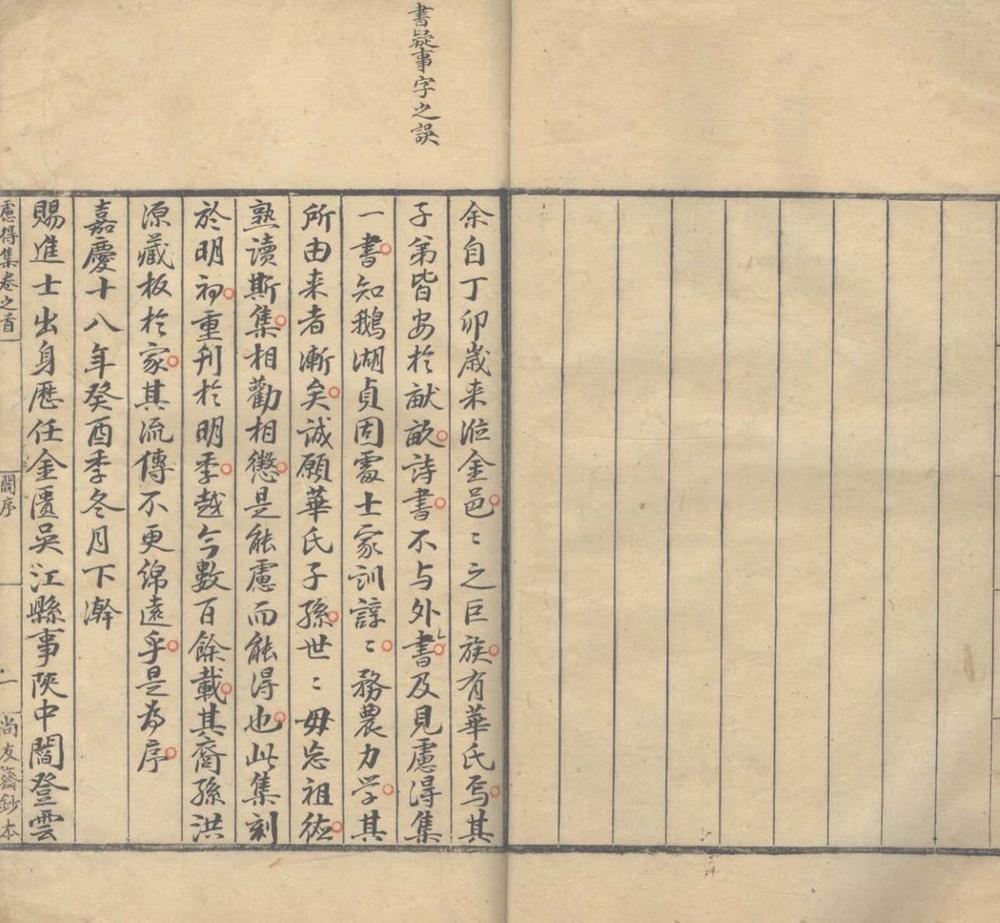 書疑事字之誤
余自丁卯歲来涖金邑〻之巨族有華氏焉其
子弟皆安於畎畝詩書不与外書及見慮得集
一書知鵝湖貞固處士家訓諄〻務農力学其
所由来者漸矣誠願華氏子孫世〻毋忘祖德
熟读斯集相勸相懲是能慮而能得也此集刻
於明初重刊於明季越今數百餘載其裔孫洪
源藏板於家其流傳不更綿遠乎是為序
嘉慶十八年癸酉季冬月下澣
賜進士出身歷任金匱吳江縣事陝中閻登雲
慮得集卷之首
閻序
一
尚友齋鈔本